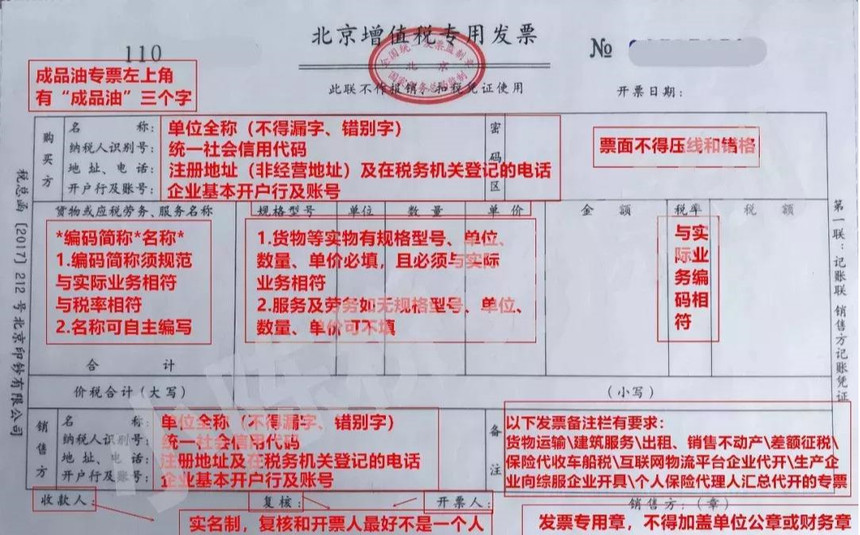 北京增值税专用发票
110
№
全国统一发票监制章
北京
国家税务总局监制
此联不作报销、扣税凭证使用
开票日期：
成品油专票左上角
有“成品油”三个字
购买方
名称：
单位全称（不得漏字、错别字）
纳税人识别号：
统一社会信用代码
地址、电话：
注册地址（非经营地址）及在税务机关登记的电话
开户行及账号：
企业基本开户行及账号
密码区
票面不得压线和错格
货物或应税劳务、服务名称 规格型号 单位 数量 单价 金额 税率 税额
*编码简称*名称*
1.编码简称须规范
与实际业务相符
与税率相符
2.名称可自主编写
1.货物等实物有规格型号、单位、
数量、单价必填，且必须与实际
业务相符
2.服务及劳务如无规格型号、单位、
数量、单价可不填
与实
际业
务编
码相
符
合计
价税合计（大写） （小写）
销售方
名称：
单位全称（不得漏字、错别字）
纳税人识别号：
统一社会信用代码
地址、电话：
注册地址及在税务机关登记的电话
开户行及账号：
企业基本开户行及账号
备注
以下发票备注栏有要求：
货物运输\建筑服务\出租、销售不动产\差额征税\
保险代收车船税\互联网物流平台企业代开\生产企
业向综服企业开具\个人保险代理人汇总代开的专票
收款人： 复核： 开票人： 销售方：（章）
实名制，复核和开票人最好不是一个人
发票专用章，不得加盖单位公章或财务章
税总函〔2017〕212号北京印钞有限公司
第一联：记账联 销售方记账凭证